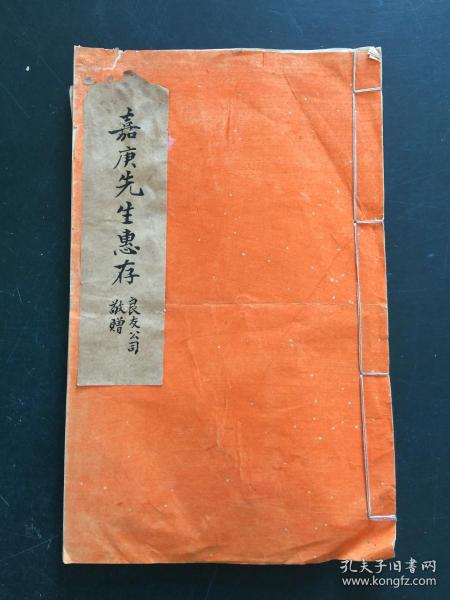 嘉庚先生惠存
良友公司
敬赠
孔夫子旧书网
www.kongfz.com